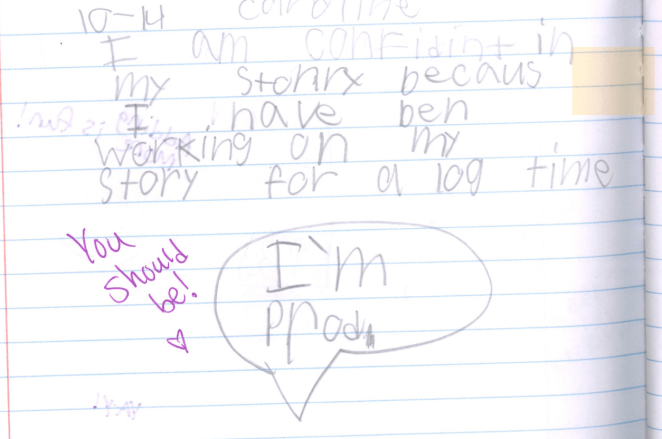 10-14 caroline
I am confidint in
my stonry becaus
I have ben
working on my
story for a log time
You
should
be!
I'm
prod